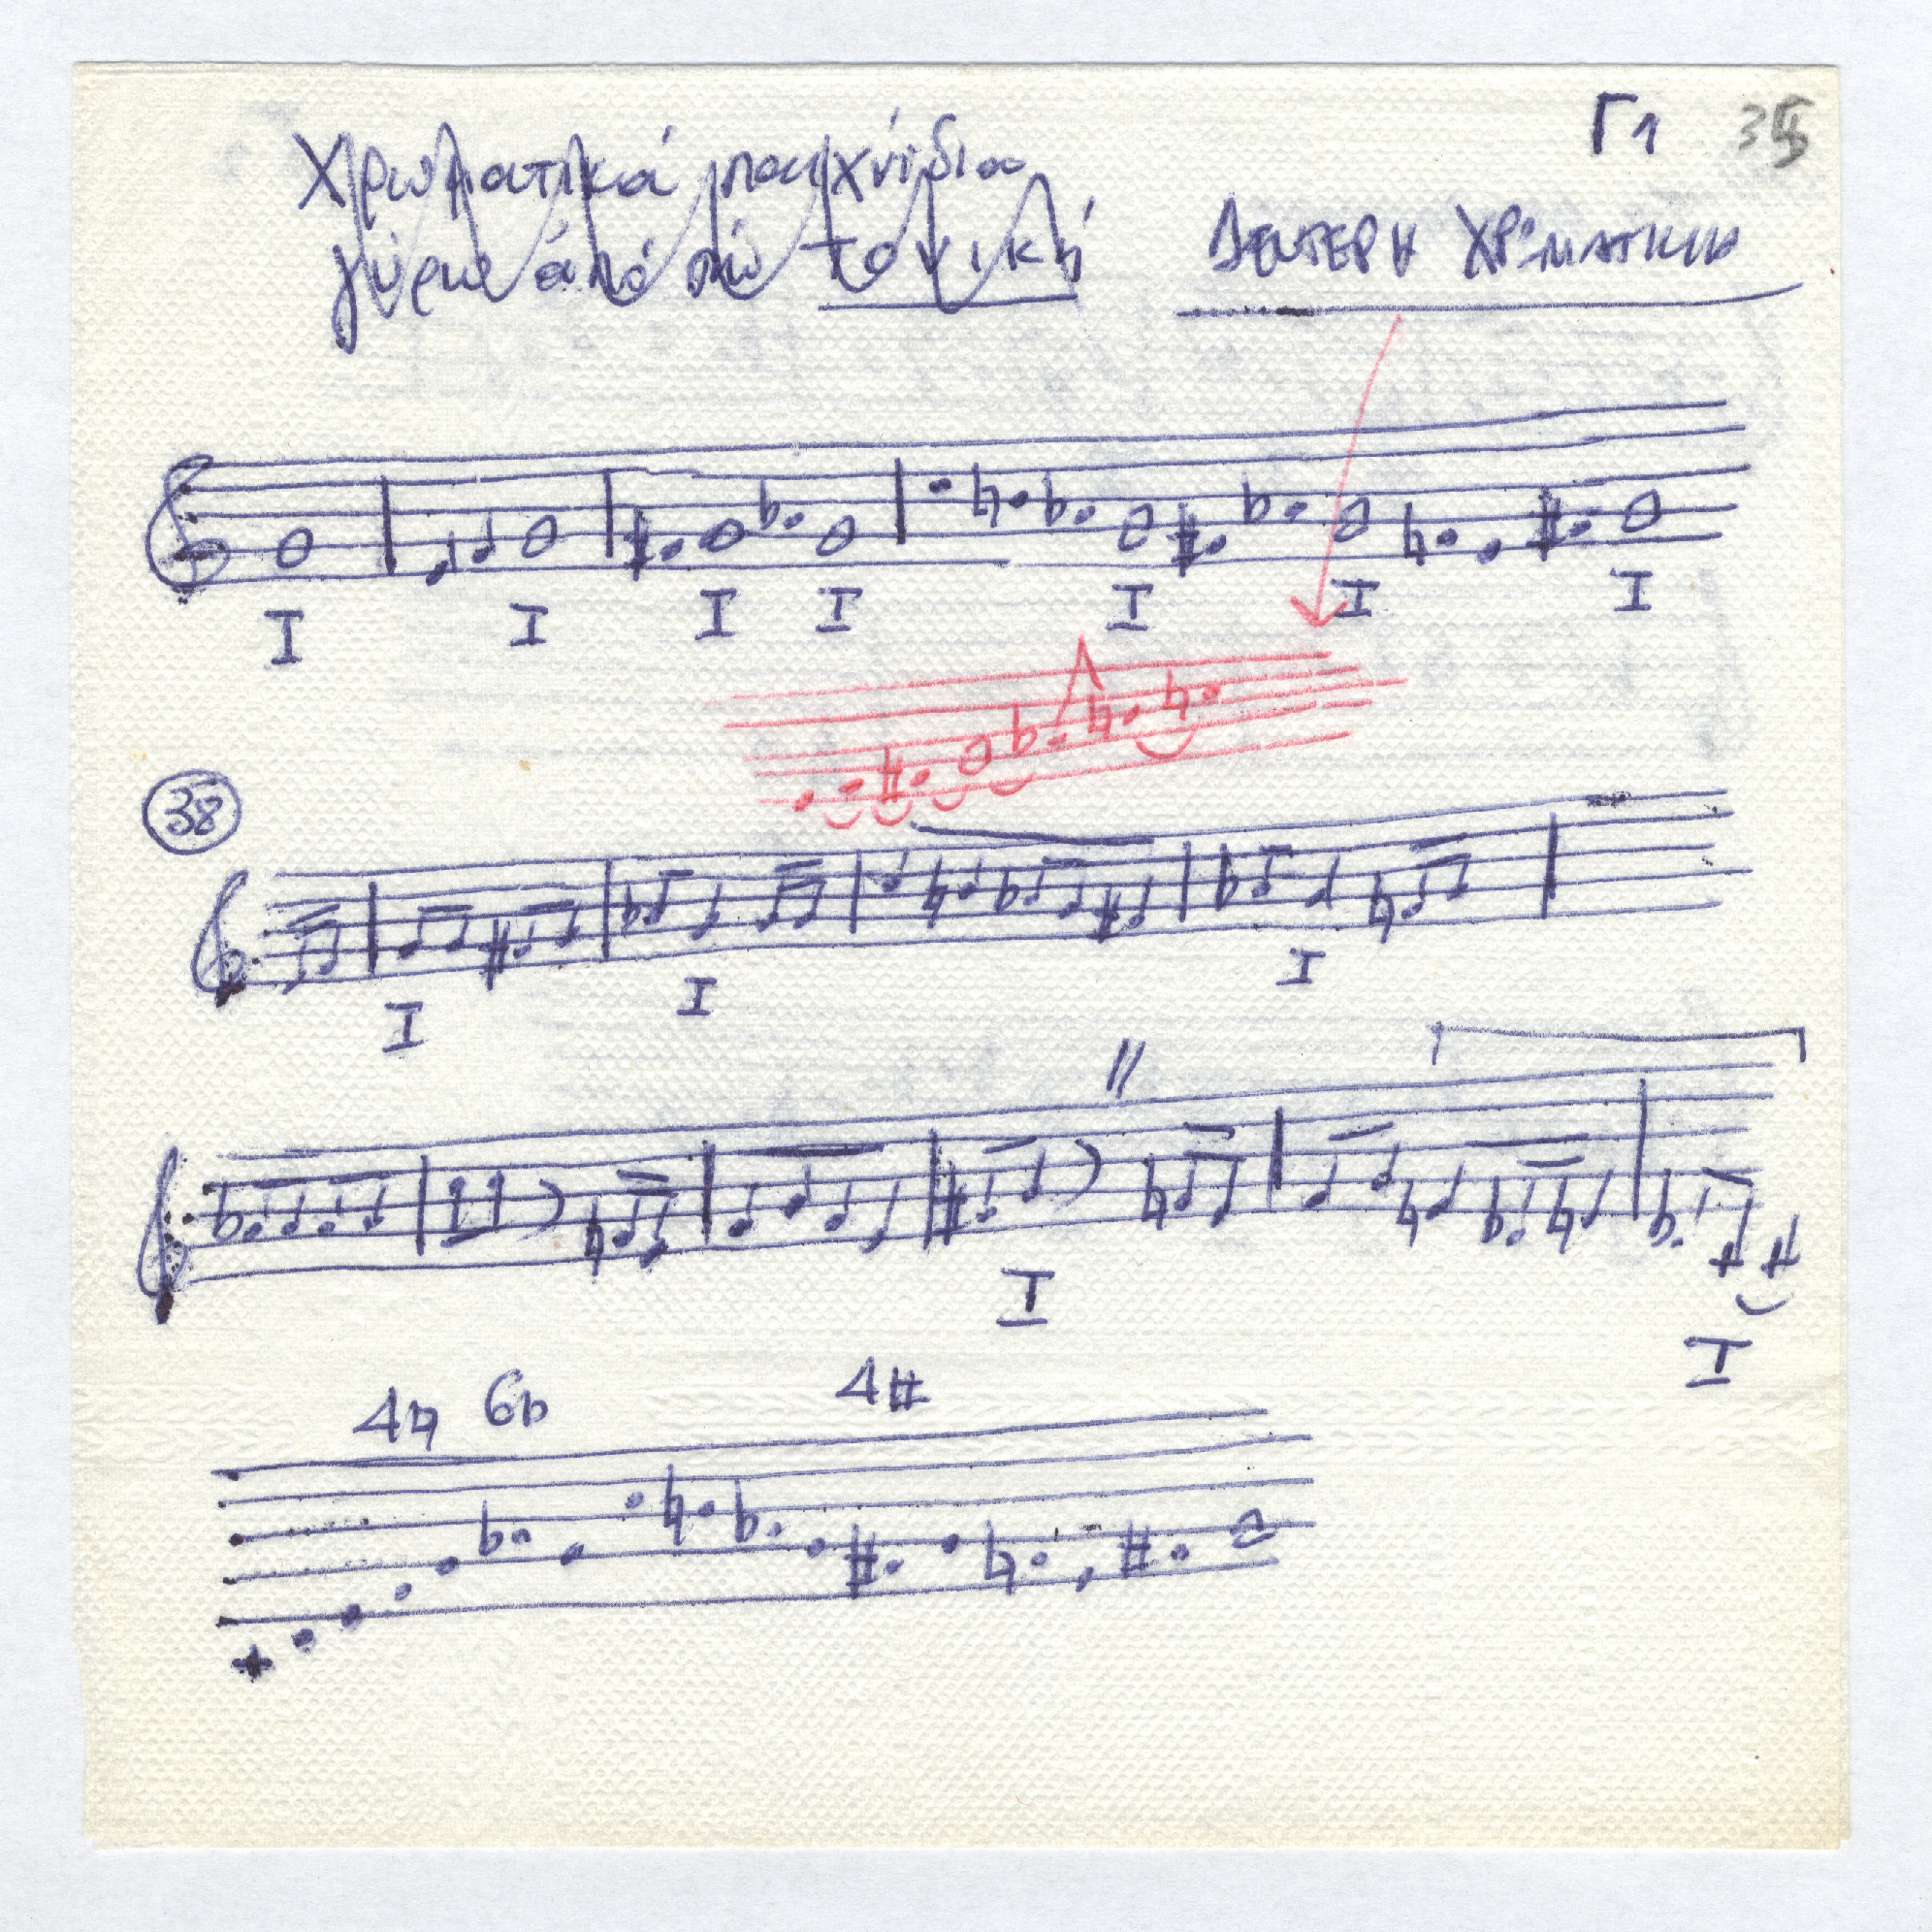 Γ1 35
Χρωματικά παιχνίδια
γύρω από την τονική
ΔΕΥΤΕΡΗ ΧΡΩΜΑΤΙΚΗ
I I I I I I I
38
I I I
I I
4♮ 6b 4#